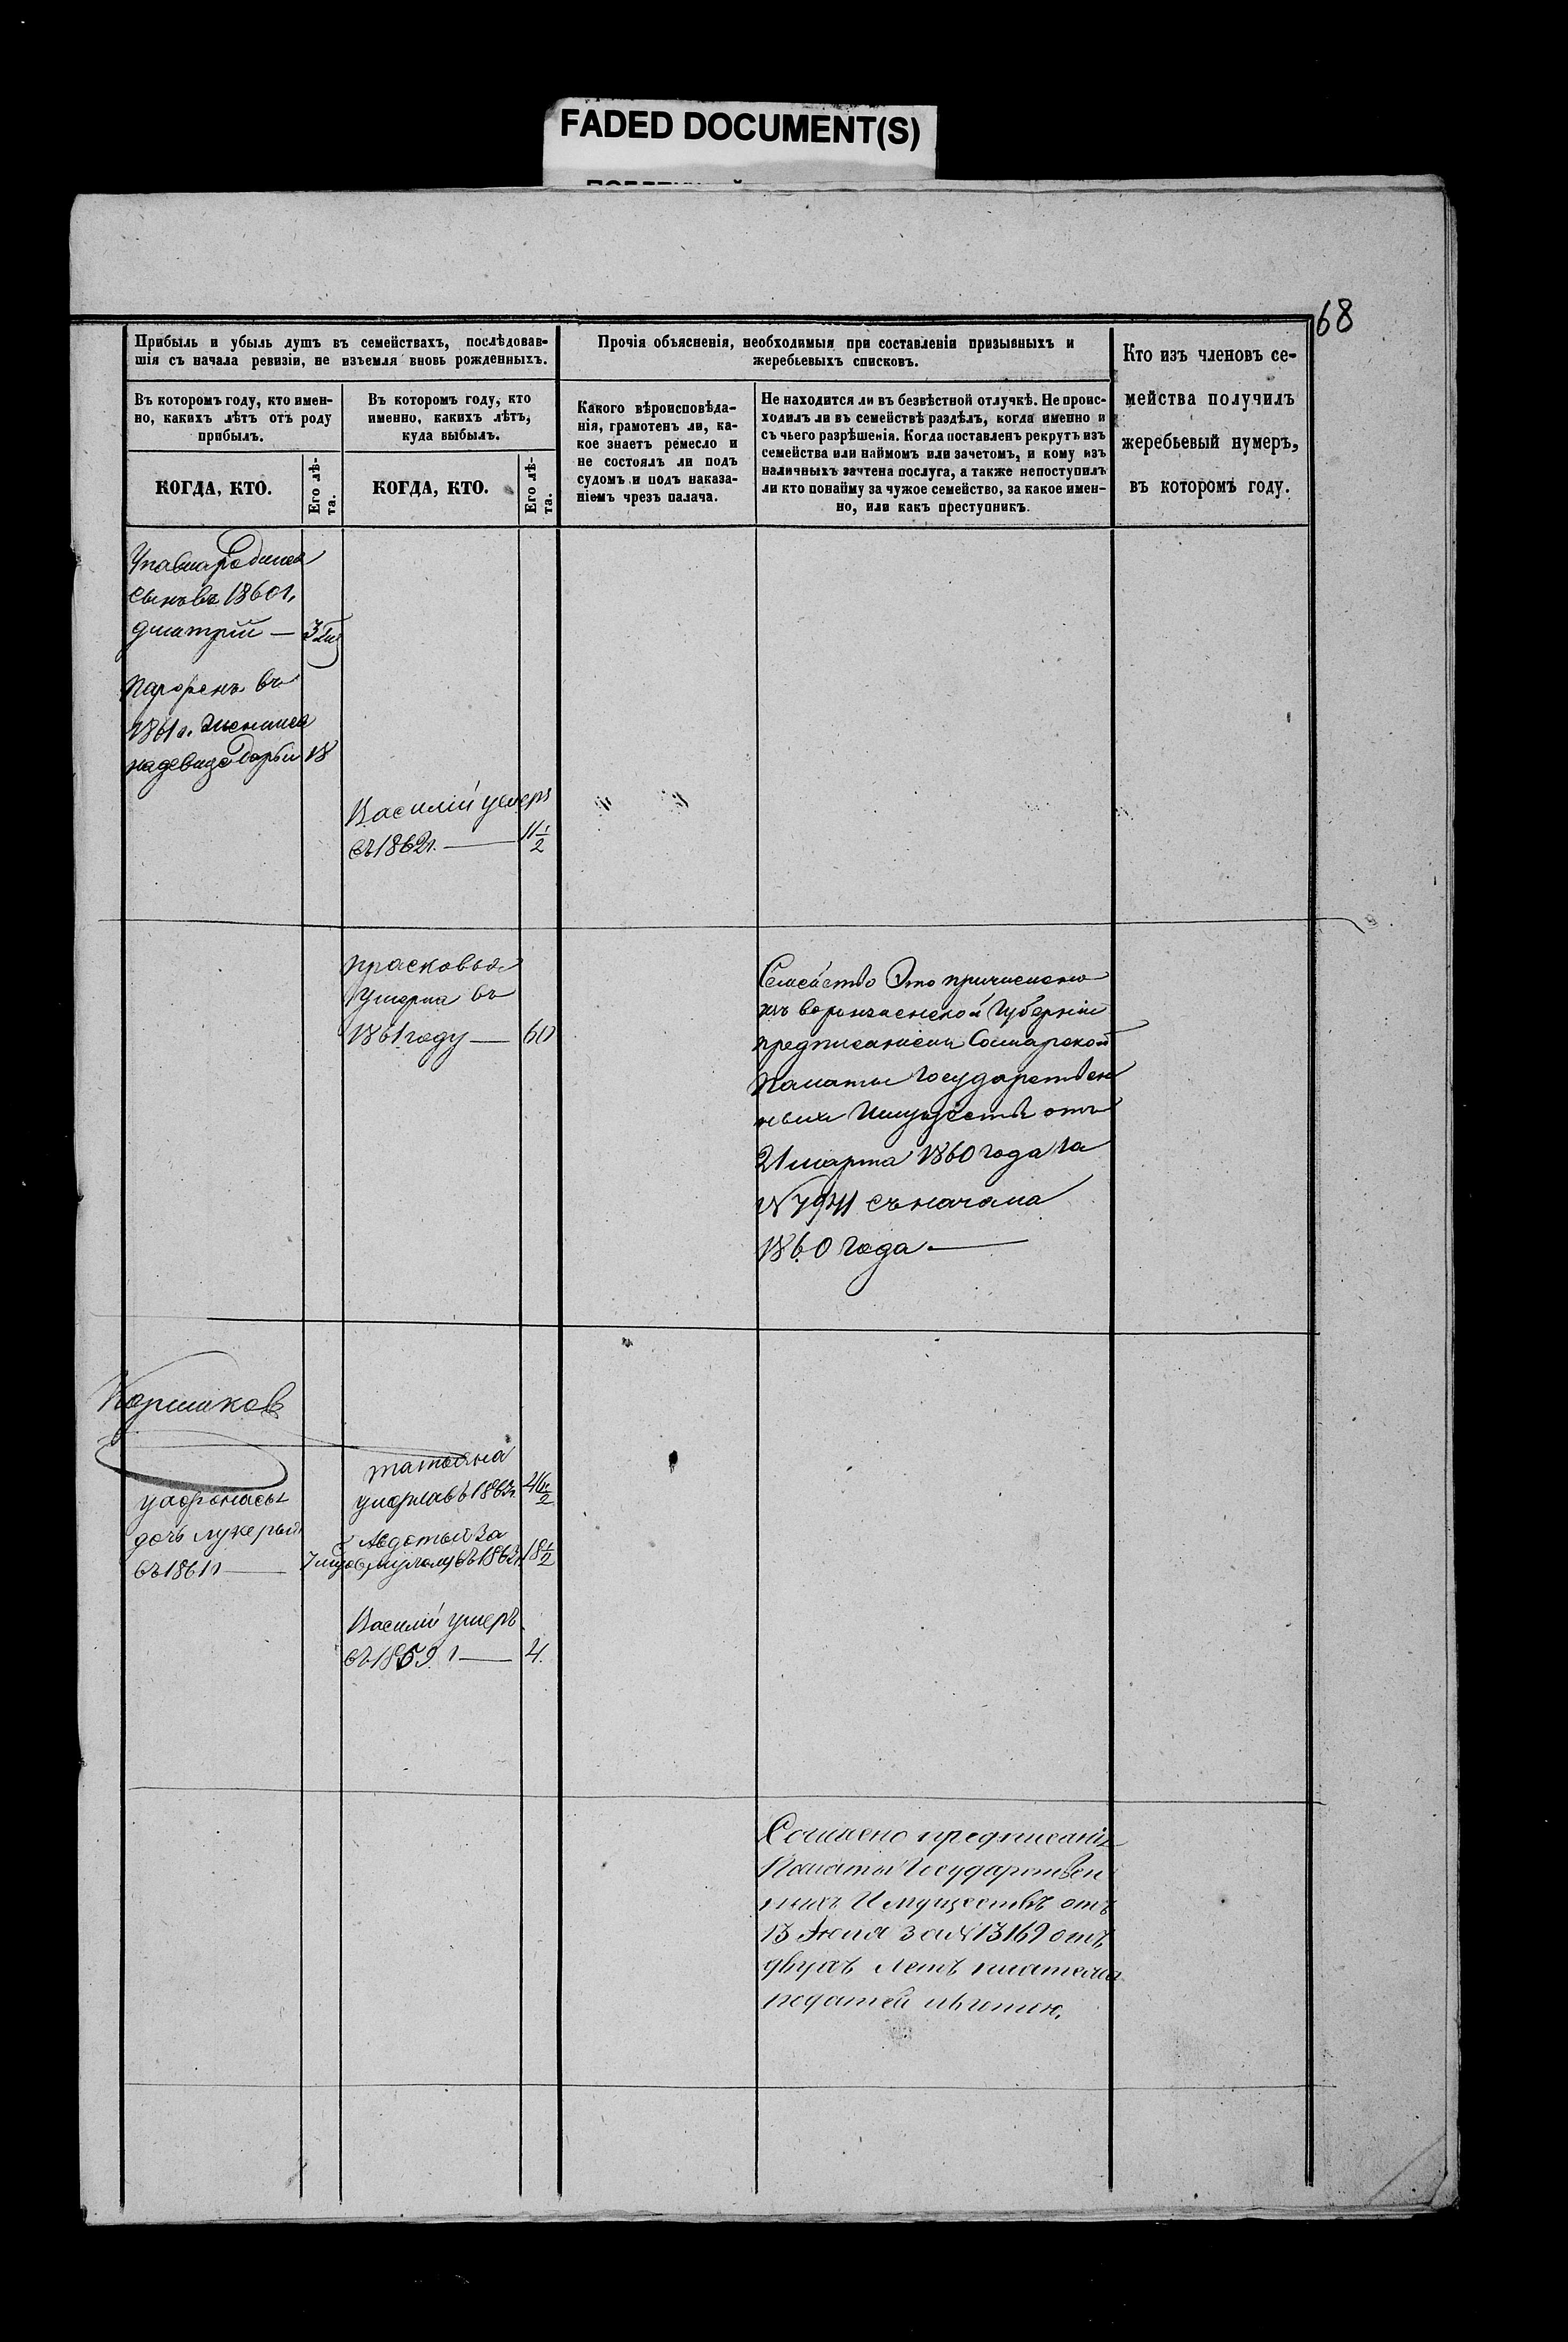 FADED DOCUMENT(S)
68
Прибыль и убыль душъ въ семействахъ, послѣдовав-
шія съ начала ревизіи, не изъемля вновь рожденныхъ.
Въ которомъ году, кто имен-
но, какихъ лѣтъ отъ роду
прибылъ.
Въ которомъ году, кто
именно, какихъ лѣтъ,
куда выбылъ.
КОГДА, КТО.
Его лѣ-
та.
КОГДА, КТО.
Его лѣ-
та.
Прочія объясненія, необходимыя при составленіи призывныхъ и
жеребьевыхъ списковъ.
Какого вѣроисповѣда-
нія, грамотенъ ли, ка-
кое знаетъ ремесло и
не состоялъ ли подъ
судомъ и подъ наказа-
ніемъ чрезъ палача.
Не находится ли въ безвѣстной отлучкѣ. Не проис-
ходилъ ли въ семействѣ раздѣлъ, когда именно и
съ чьего разрѣшенія. Когда поставленъ рекрутъ изъ
семейства или наймомъ или зачетомъ, и кому изъ
наличныхъ зачтена послуга, а также непоступилъ
ли кто понайму за чужое семейство, за какое имен-
но, или какъ преступникъ.
Кто изъ членовъ се-
мейства получилъ
жеребьевый нумеръ,
въ которомъ году.
родился
сынъ въ 1860 г.
дмитрій —
Парфенъ въ
1861 г. женился
на девице дарьи 18
Василій умеръ
въ 1862 г. — 11 1/2
прасковья
умерла въ
1861 году — 60
Семейство Это причислено
изъ воронженской Губерніи
предписаніемъ Самарской
Палаты Государствен
ныхъ Имуществъ отъ
21 марта 1860 года за
N 7941 съ начала
1860 года —
Коршиков
татьяна
въ 1862 г. 46 1/2
у афонасы
дочь лукерья
въ 1861 г —
Авдотья за
въ 1862 г. 18 1/2
Василій умеръ
въ 1859 г — 4.
предписанія
Палаты Государствен
ныхъ Имуществъ отъ
13 Июля за N 13169 отъ
двухъ летъ платежа
податей льготою.